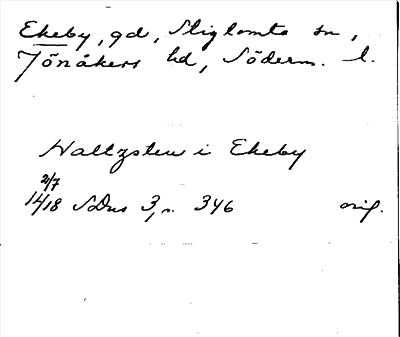 Ekeby, gd, Stigtomta sn,
Jönåkers hd, Söderm. l.
Hallzsten i Ekeby
2/7
14/18 SDns 3, n. 346 orig.